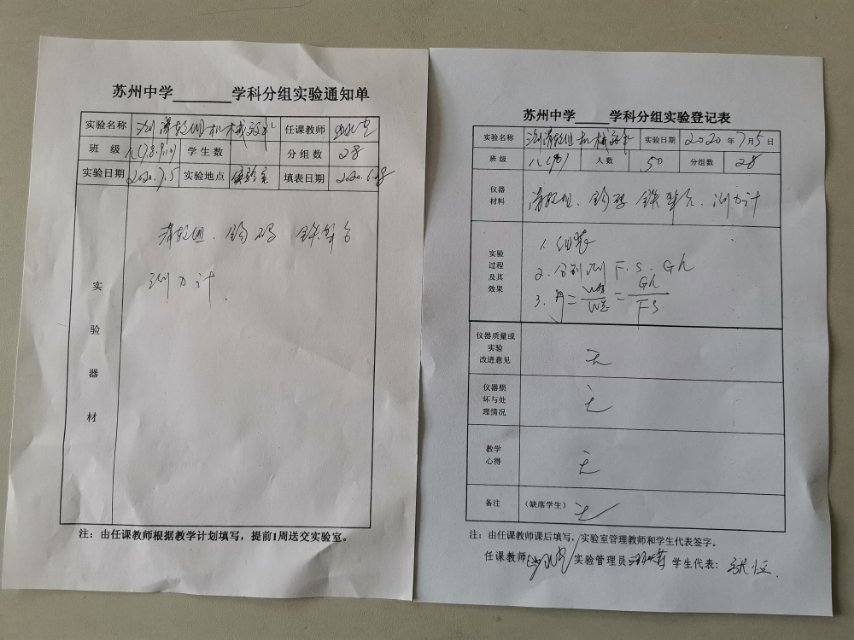 苏州中学______学科分组实验通知单
实验名称 测滑轮组机械效率 任课教师
班 级 学生数 分组数 28
实验日期 2020.7.5 实验地点 实验室 填表日期
滑轮组、钩码 铁架台
测力计
实
验
器
材
注:由任课教师根据教学计划填写,提前1周送交实验室。
苏州中学____学科分组实验登记表
实验名称 测滑轮组机械效率 实验日期 2020年7月5日
班 级 八(9) 人数 50 分组数 28
仪器
材料
滑轮组、钩码 铁架台、测力计
实验
过程
及其
效果
1、组装
2、分别测 F、S、G h
3、η=W有/W总=Gh/FS
仪器质量或
实验
改进意见
无
仪器损
坏与处
理情况
无
教学
心得
无
备注 (缺席学生) 无
注:由任课教师课后填写,实验室管理教师和学生代表签字。
任课教师 实验管理员 学生代表: